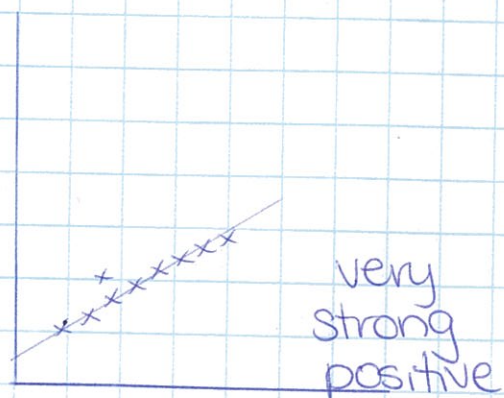 very
strong
positive